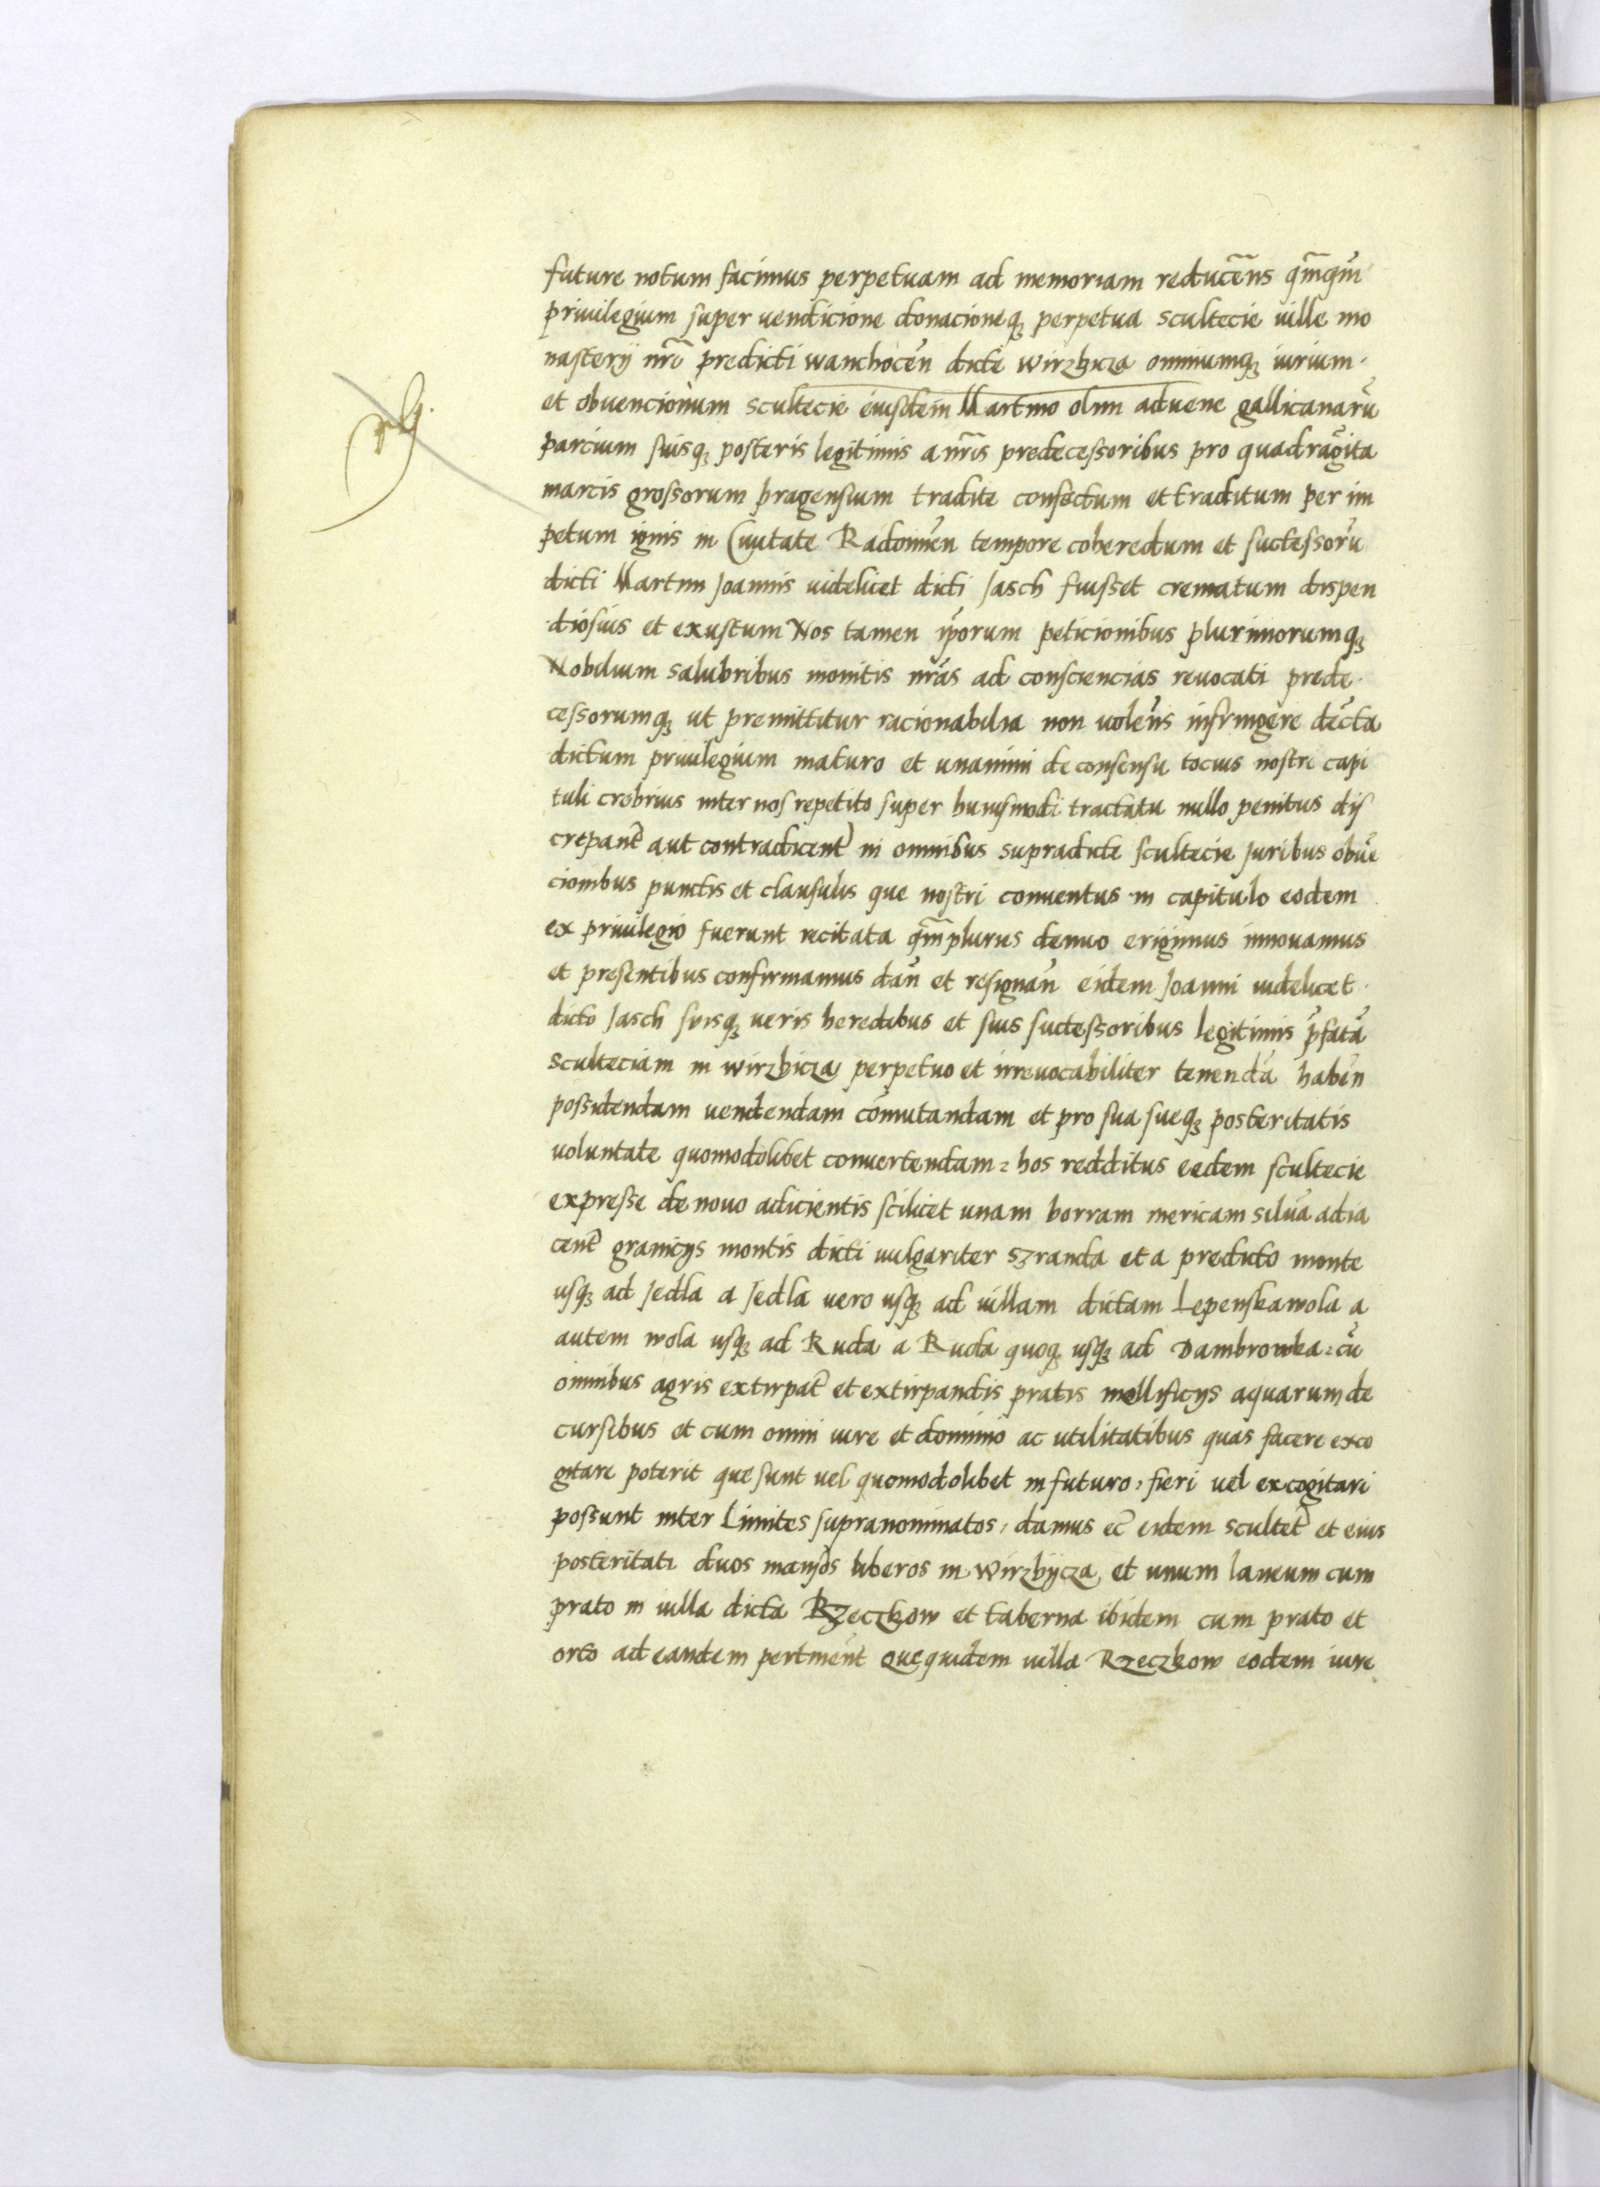 future notum facimus perpetuam ad memoriam reducẽns qm̃qm̃
priuilegium super uendicione donacioneq₃ perpetua scultecie uille mo
nasterij nr̃i predicti wanchocen̄ dicte wirzbicza omniumq₃ iurium.
et obuencionum scultecie eiusdem Martino olim aduene gallicanarũ
parcium suisq₃ posteris legitimis a nr̃is predecessoribus pro quadragĩta
marcis grossorum pragensium tradite confectum et traditum per im
petum ignis in Ciuitate Radomien̄ tempore coheredum et successorũ
dicti Martini Joannis uidelicet dicti Jasch fuisset crematum dispen
diosius et exustum Nos tamen ip̄orum peticionibus plurimorumq₃
Nobilium salubribus monitis nr̃as ad consciencias reuocati prede.
cessorumq₃ ut premittitur racionabilia non uolen̄s infringere dec̄ta
dictum priuilegium maturo et unanimi de consensu tocius nostri capi
tuli crebrius inter nos repetito super huiusmodi tractatu nullo penitus dis
crepant̄ aut contradicent̄ in omnibus supradicte scultecie Juribus obuẽ
cionibus punctis et clausulis que nostri conuentus in capitulo eodem
ex priuilegio fuerunt recitata qm̃plurus denuo erigimus innouamus
et presentibus confirmamus dan̄ et resignan̄ eidem Joanni uidelicet.
dicto Jasch suisq₃ ueris heredibus et suis successoribus legitimis p̄fatã
sculteciam in wirzbicza perpetuo et irreuocabiliter tenendã haben̄
possidendam uendendam cõmutandam et pro sua sueq₃ posteritatis
uoluntate quomodolibet conuertendam: hos redditus eedem scultecie
expresse de nouo adicientis scilicet unam borram mericam siluã adia
cent̄ granicijs montis dicti uulgariter Szranda et a predicto monte
usq₃ ad Jedla a Jedla uero usq₃ ad uillam dictam Lepenskawola a
autem wola usq₃ ad Ruda a Ruda quoq₃ usq₃ ad Dambrowka: cũ
omnibus agris extirpat̄ et extirpandis pratis mellificijs aquarum de
cursibus et cum omni iure et dominio ac utilitatibus quas facere exco
gitare poterit que sunt uel quomodolibet in futuro, fieri uel excogitari
possunt inter Limites supranominatos, damus ec̄ eidem scultet̄ et eius
posteritati duos mansos liberos in Wirzbijcza, et unum laneum cum
prato in uilla dicta Rzeczkow et taberna ibidem cum prato et
orto ad eandem pertinen̄t Que quidem uilla Rzeczkow eodem iure